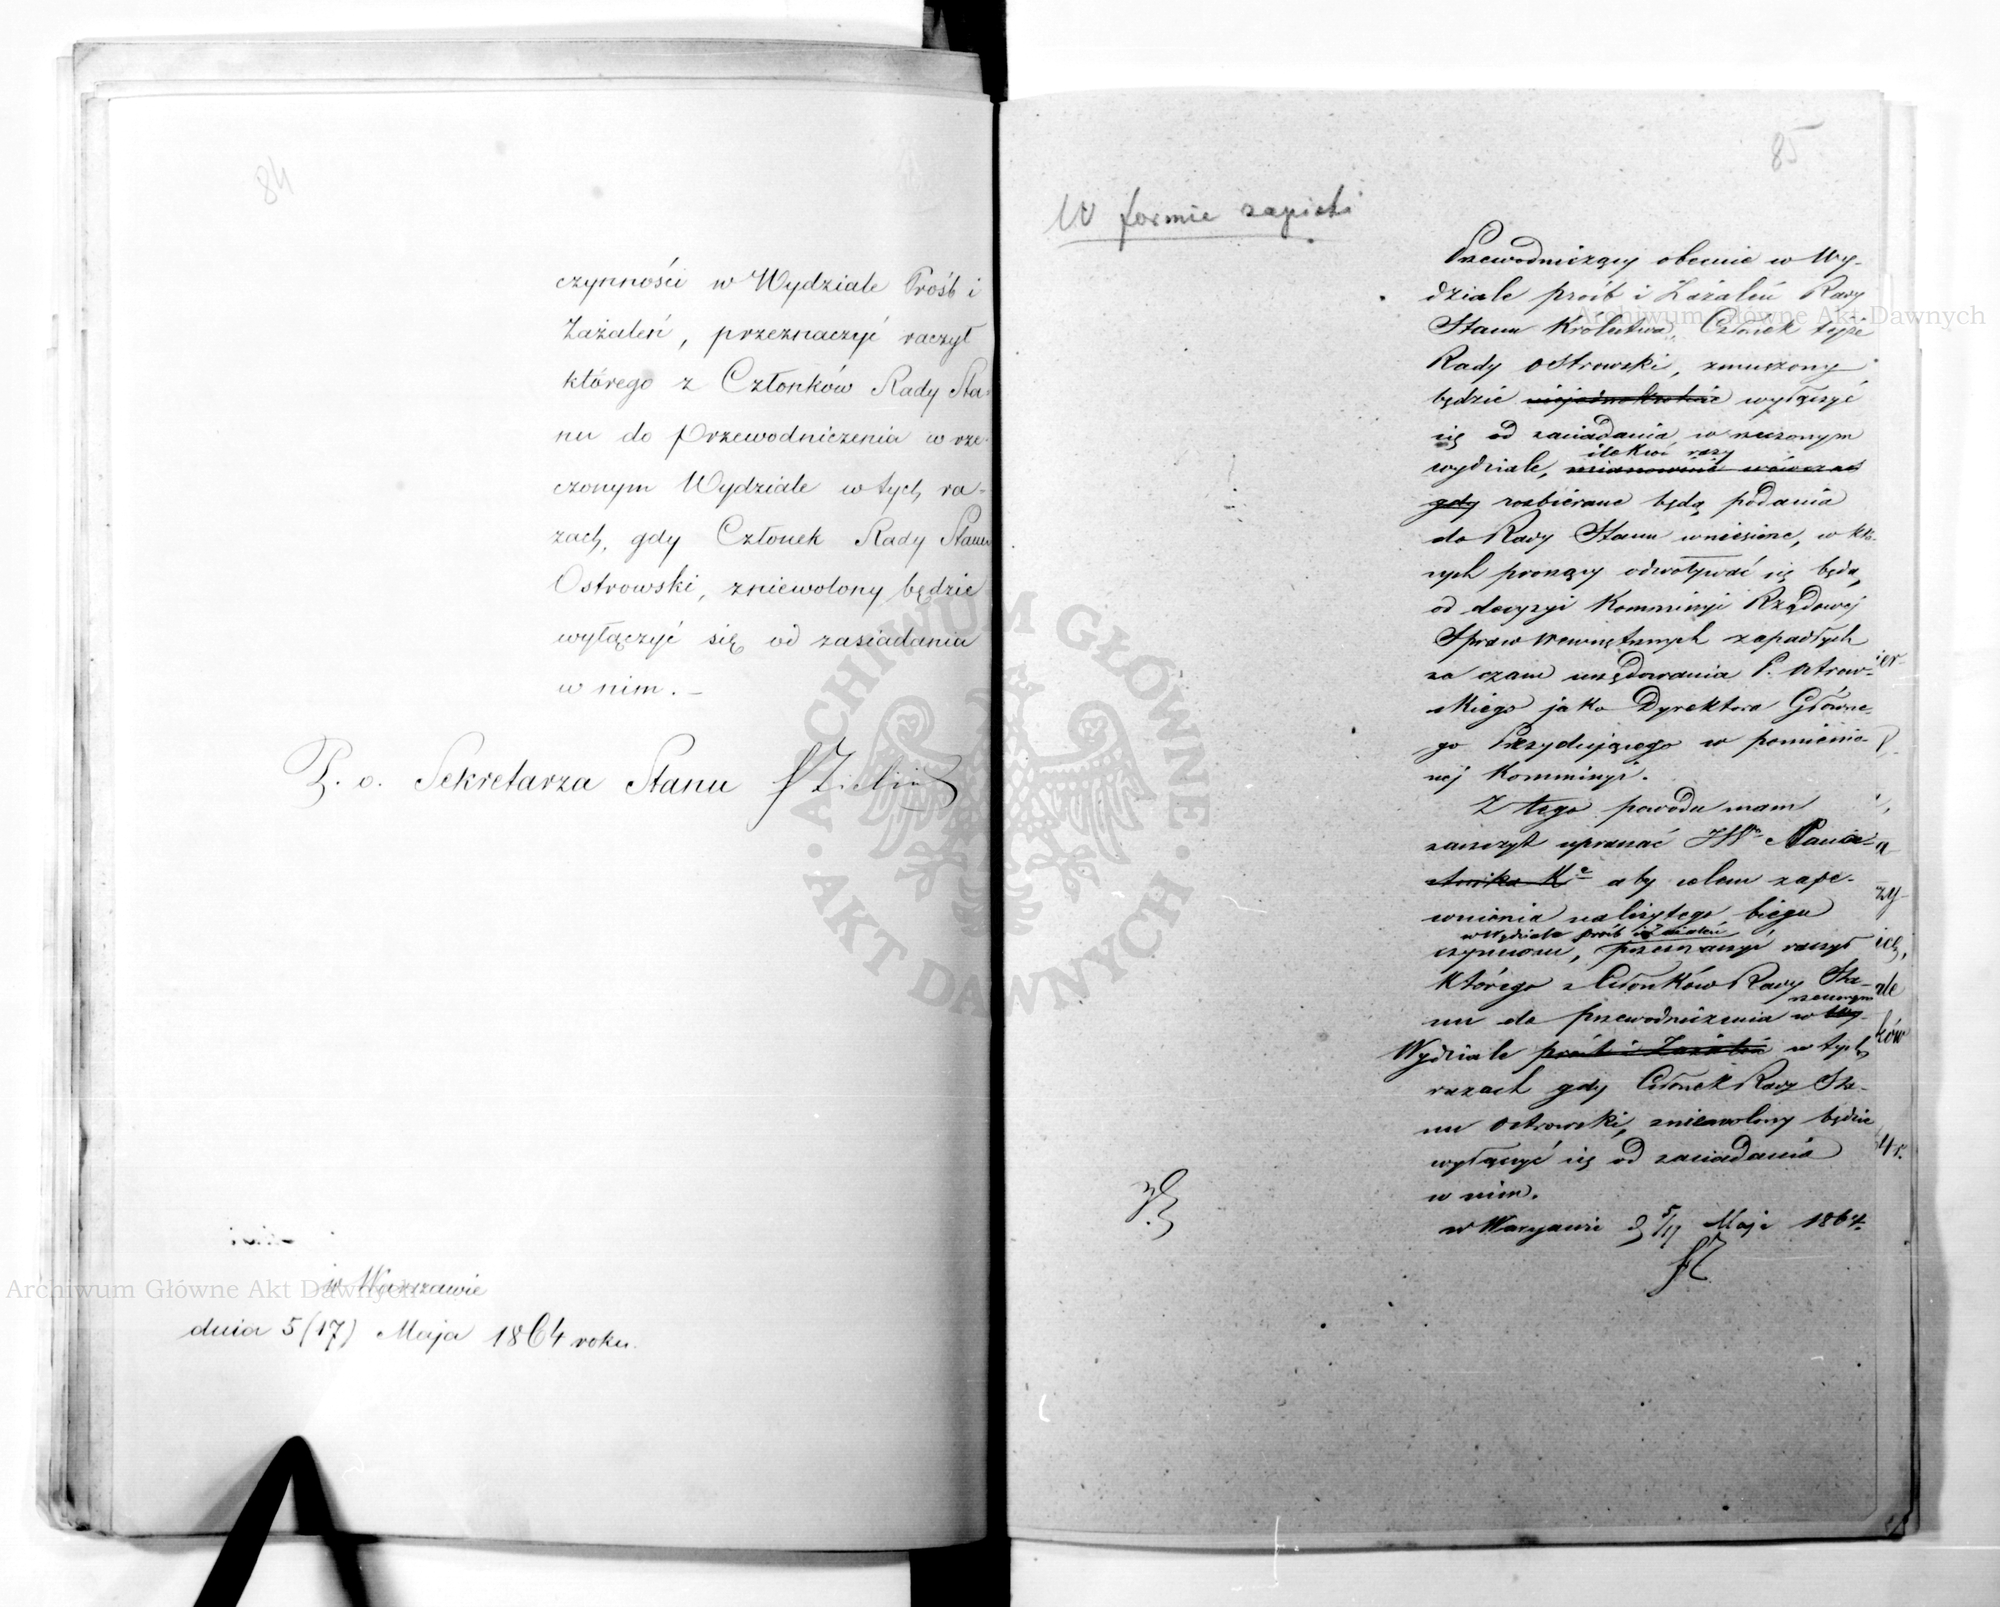 84
czynności w Wydziale Próśb i
Zażaleń, przeznaczyć raczył
którego z Członków Rady Sta-
nu do przewodniczenia w rze-
czonym Wydziale w tych ra-
zach, gdy Członek Rady Stanu
Ostrowski, zniewolony będzie
wyłączyć się od zasiadania
w nim. –
P. o. Sekretarza Stanu
w Warszawie
dnia 5 (17) Maja 1864 roku.
85
W formie zapiski
Przewodniczący obecnie w Wy-
dziale próśb i Zażaleń Rady
Stanu Królestwa, Członek tejże
Rady Ostrowski, zmuszony
będzie niejednokrotnie wyłączyć
się od zasiadania w rzeczonym
ilekroć razy
wydziale, mianowicie wówczas
gdy rozbierane będą podania
do Rady Stanu wniesione, w któ-
rych proszący odwoływać się będą
od decyzyi Kommissyi Rządowej
Spraw Wewnętrznych zapadłych
za czasu urzędowania P. Ostrow-
skiego jako Dyrektora Główne-
go Prezydującego w pomienio-
nej Kommissyi.
Z tego powodu mam
zaszczyt upraszać JW
aby celem zape-
wnienia należytego biegu
w Wydziale próśb i Zażaleń
czynności, przeznaczyć raczył
którego z Członków Rady Sta-
rzeczonym
nu do przewodniczenia w Wy-
Wydziale próśb i Zażaleń w tych
razach gdy Członek Rady Sta-
nu Ostrowski, zniewolony będzie
wyłączyć się od zasiadania
w nim.
w Warszawie d 5/17 Maja 1864.
Archiwum Główne Akt Dawnych
Archiwum Główne Akt Dawnych
ARCHIWUM GŁÓWNE
AKT DAWNYCH